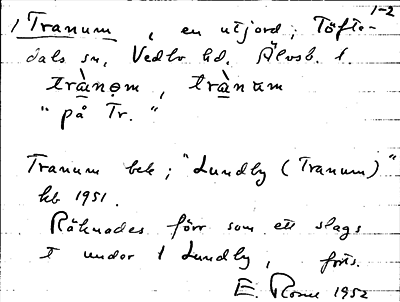 1-2
1 Tranum, en utjord, Töfte-
dals sn, Vedbo hd. Älvsb. l.
trànọm, trànum
"på Tr."
Tranum bek; "Lundby (Tranum)"
kb 1951.
Räknades förr som ett slags
t under 1 Lundby, forts.
E. 1952